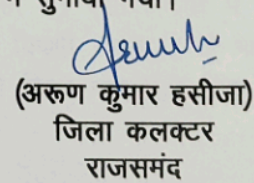 सुनाया गया।
(अरूण कुमार हसीजा)
जिला कलक्टर
राजसमंद